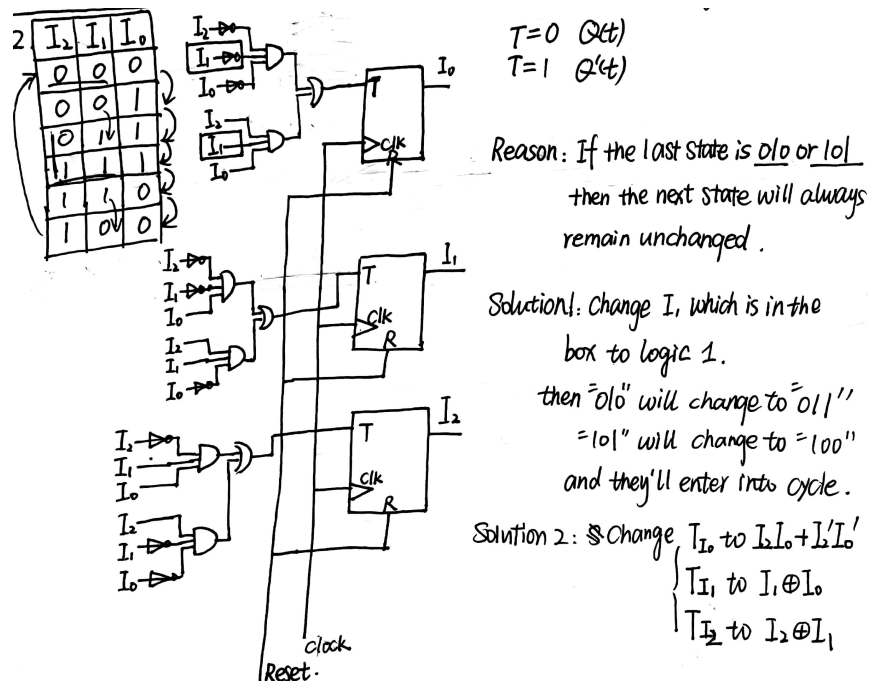 2 I₂ I₁ I₀
0 0 0
0 0 1
0 1 1
1 1 1
1 1 0
1 0 0
I₂
I₁
I₀
I₂
I₁
I₀
T
I₀
Clk
R
I₂
I₁
I₀
I₂
I₁
I₀
T
I₁
Clk
R
I₂
I₁
I₀
I₂
I₁
I₀
T
I₂
Clk
R
clock
Reset.
T=0 Q(t)
T=1 Q'(t)
Reason: If the last state is 010 or 101
then the next state will always
remain unchanged.
Solution1: Change I, which is in the
box to logic 1.
then "010" will change to "011"
"101" will change to "100"
and they'll enter into cycle.
Solution 2: Change T_I₀ to I₂I₀+I₂'I₀'
T_I₁ to I₁⊕I₀
T_I₂ to I₂⊕I₁